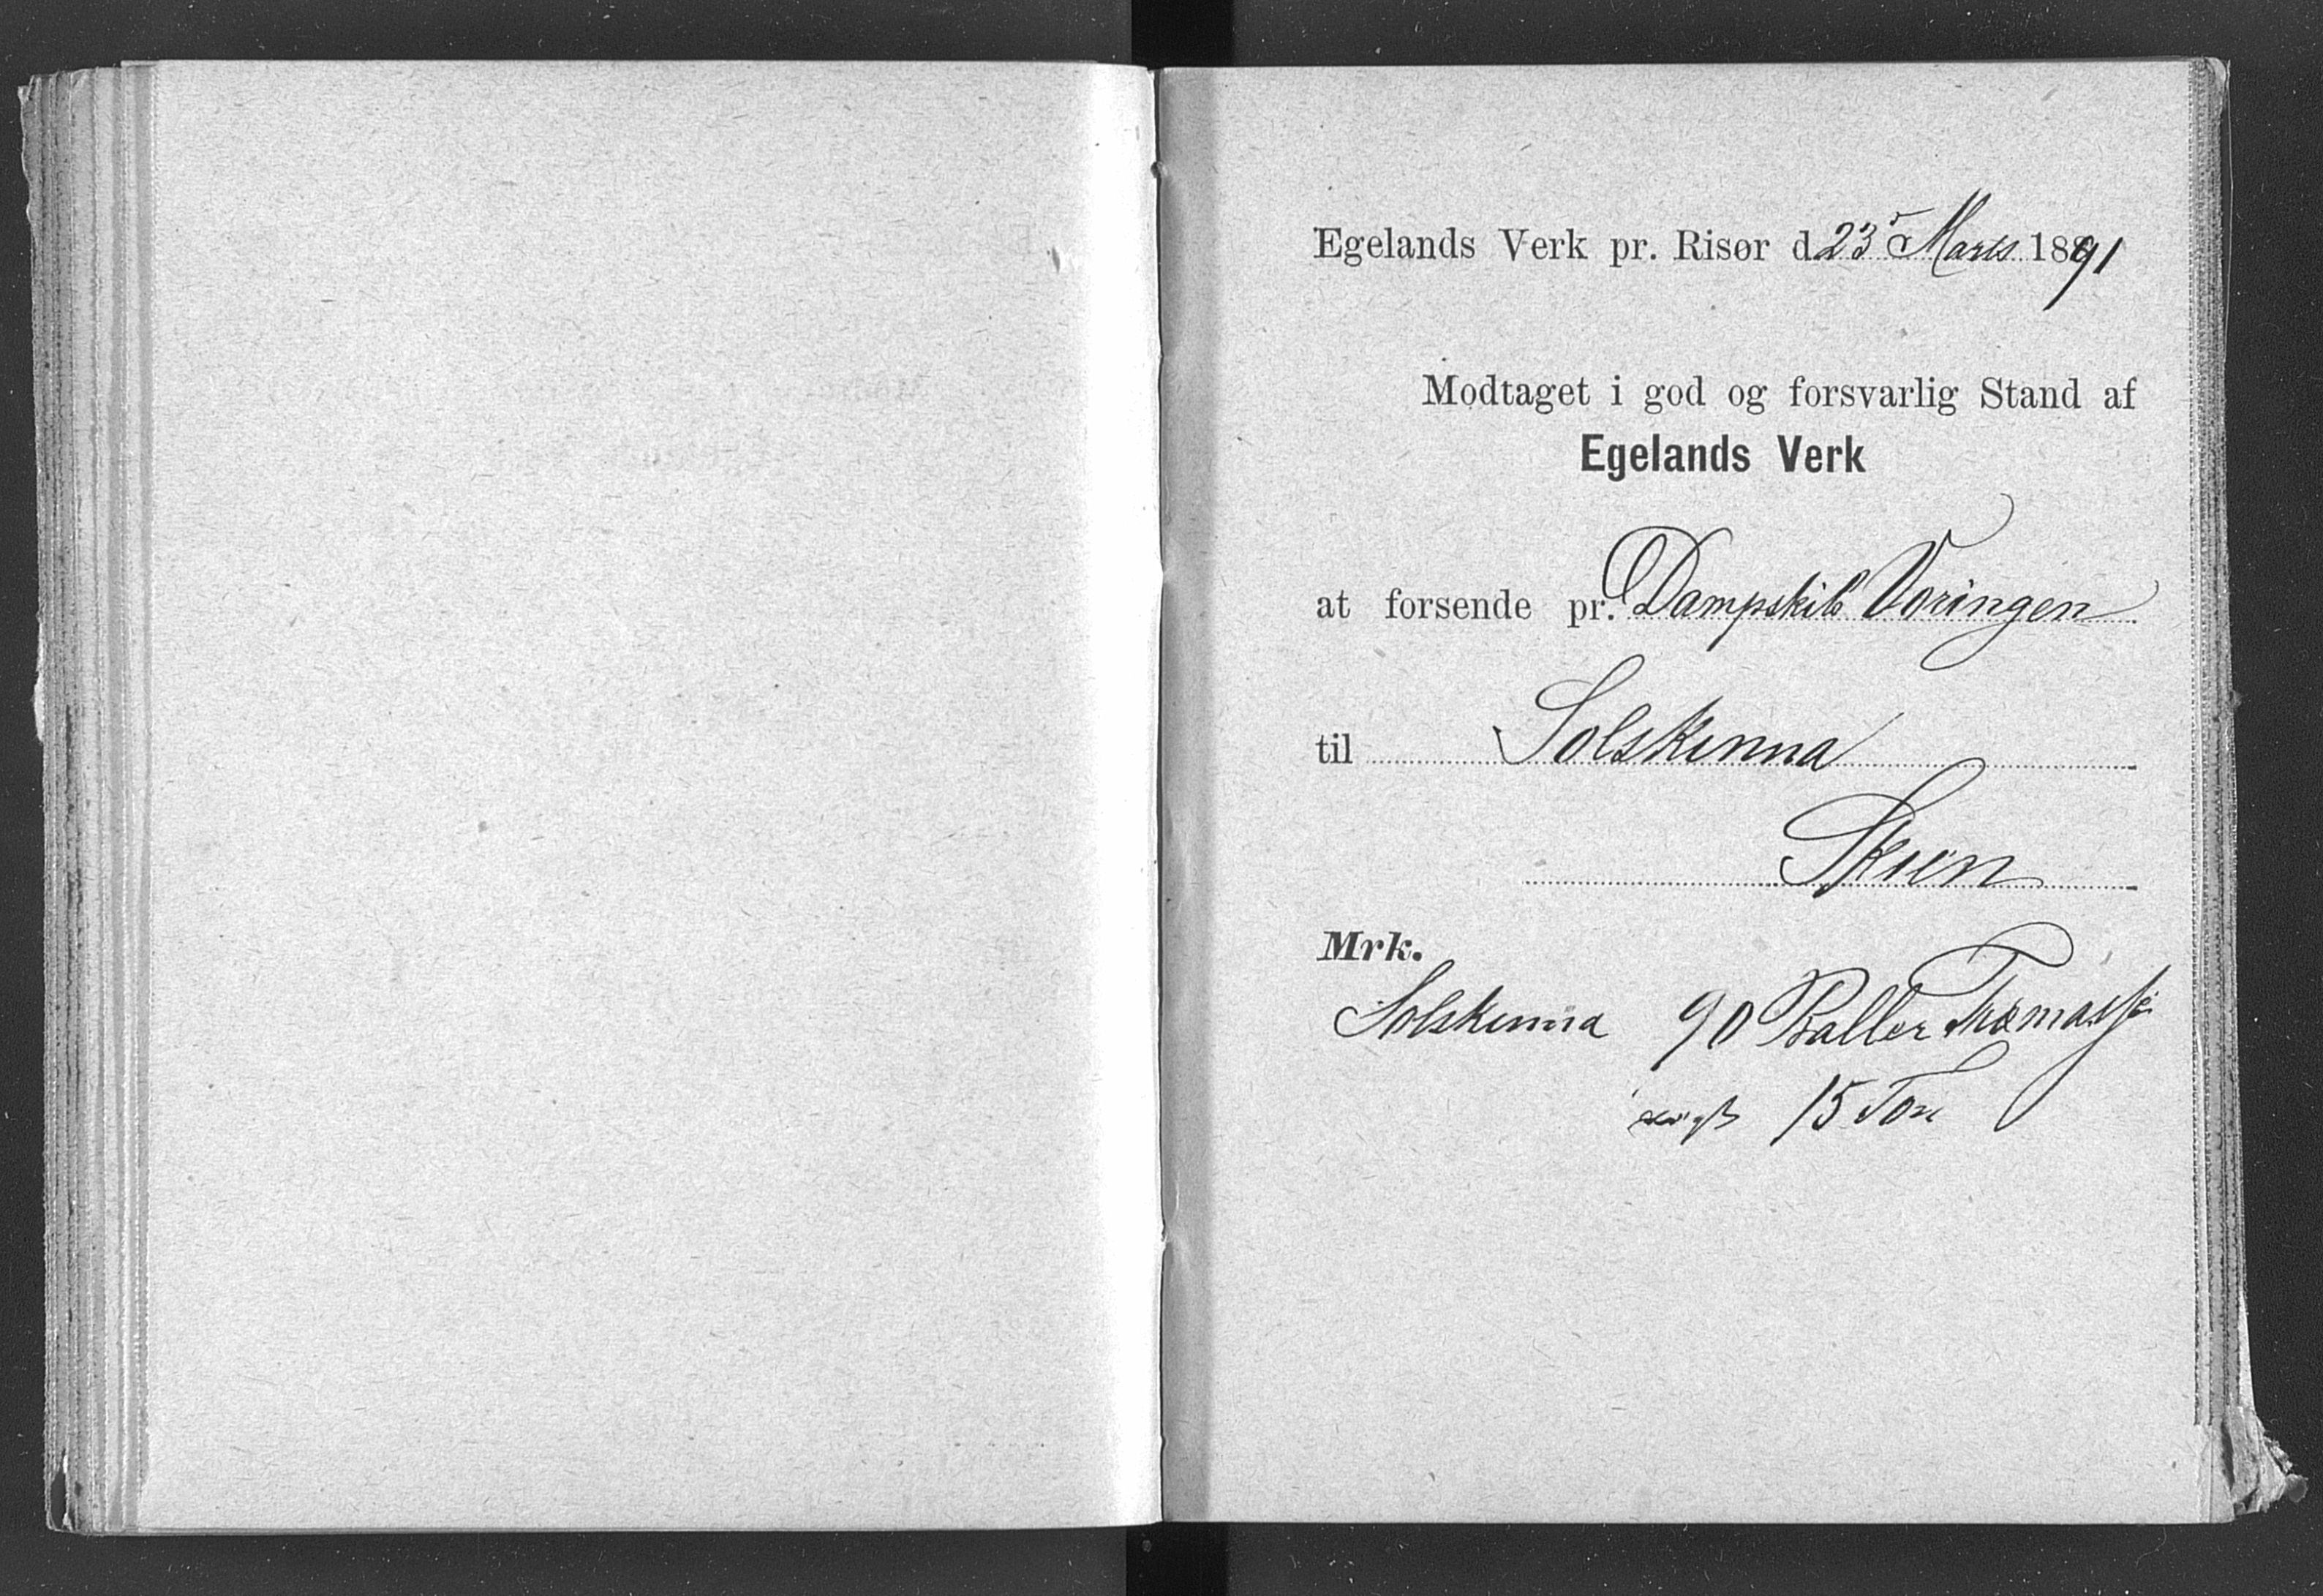 Egelands Verk pr. Risør d. 23 Marts 1891
Modtaget i god og forsvarlig Stand af
Egelands Verk
at forsende pr. Dampskib Voringen
til Solskinna
Skien
Mrk.
Solskinna 90 Baller Træmasse
vægt 15 Ton